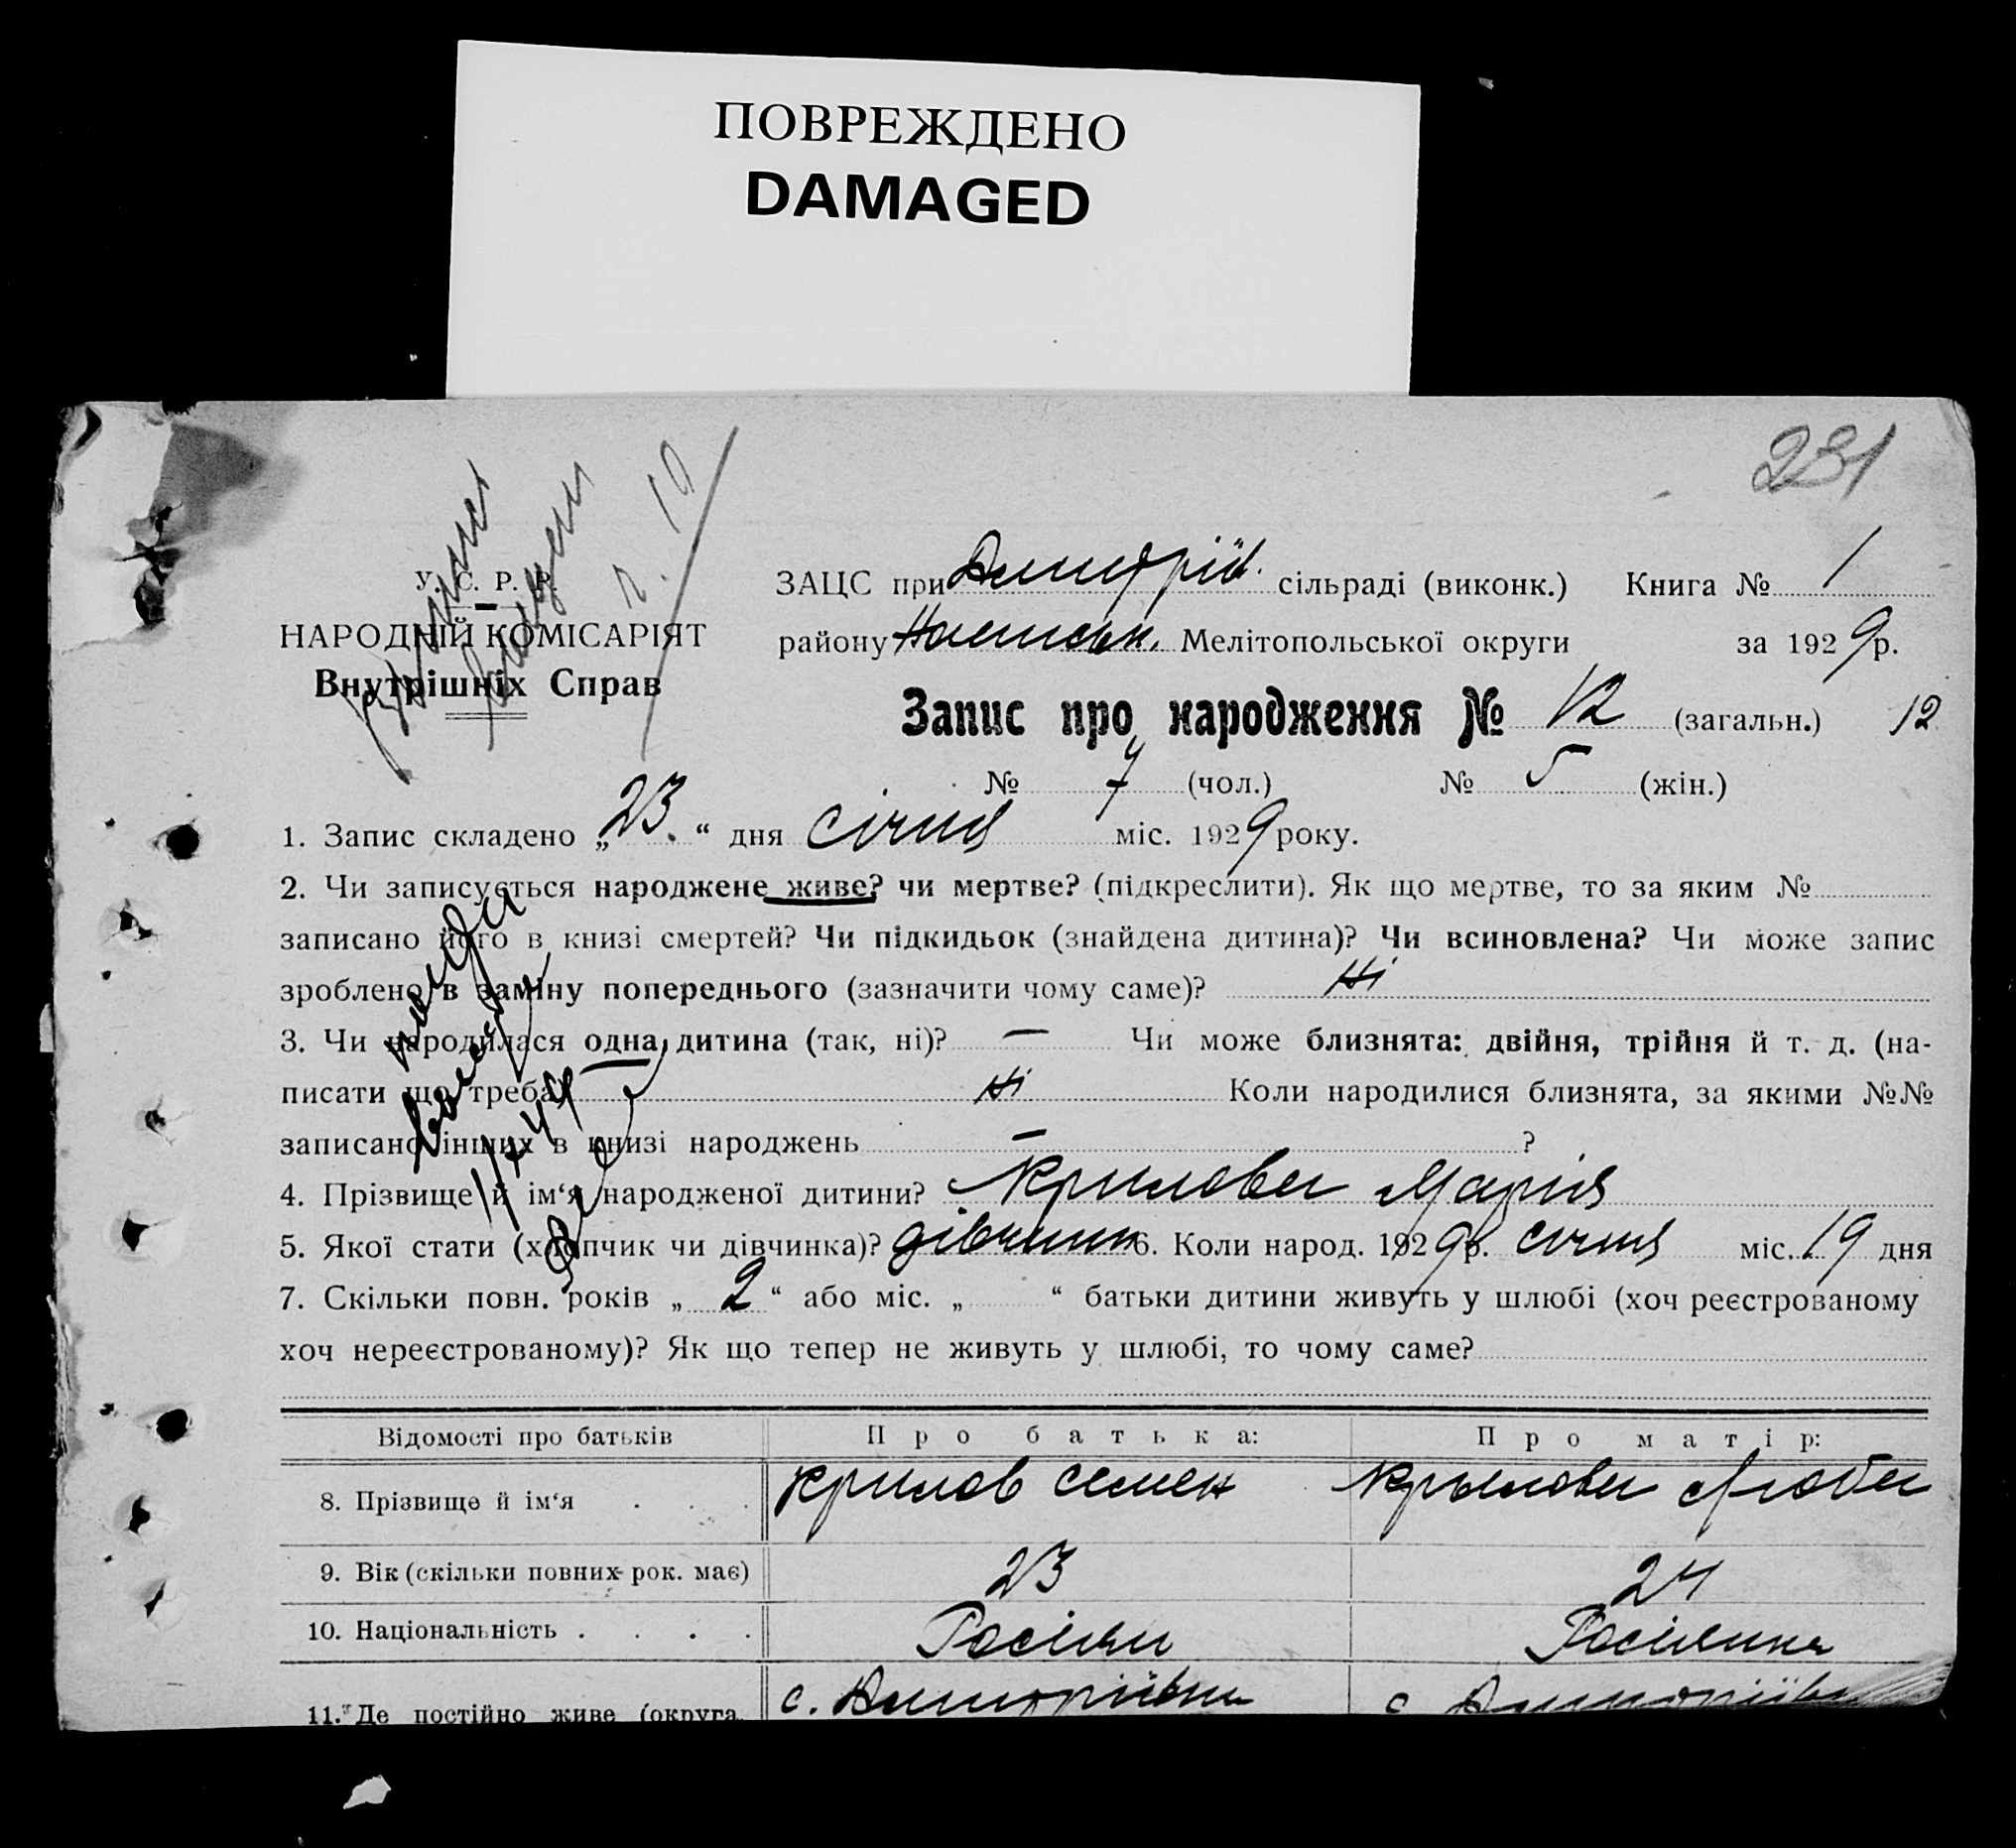 ПОВРЕЖДЕНО
DAMAGED
231
У. С. Р. Р.
НАРОДНІЙ КОМІСАРІЯТ
Внутрішніх Справ
ЗАЦС при Дмитрів. сільраді (виконк.) Книга № 1
району Мелітопольської округи за 1929 р.
Запис про народження № 12 (загальн.) 12
№ 7 (чол.) № 5 (жін.)
1. Запис складено „23.“ дня січня міс. 1929 року.
2. Чи записується народжене живе? чи мертве? (підкреслити). Як що мертве, то за яким №
записано його в книзі смертей? Чи підкидьок (знайдена дитина)? Чи всиновлена? Чи може запис
зроблено в заміну попереднього (зазначити чому саме)? Ні
3. Чи народилася одна дитина (так, ні)? — Чи може близнята: двійня, трійня й т. д. (на-
писати що треба) Ні Коли народилися близнята, за якими №№
записано інших в книзі народжень — ?
4. Прізвище й ім‘я народженої дитини? Крилова Марія
5. Якої стати (хлопчик чи дівчинка)? дівчинка 6. Коли народ. 1929 р. січня міс. 19 дня
7. Скільки повн. років „ 2 “ або міс. „ “ батьки дитини живуть у шлюбі (хоч реєстрованому
хоч нереєстрованому)? Як що тепер не живуть у шлюбі, то чому саме?
Відомості про батьків Про батька: Про матір:
8. Прізвище й ім‘я . . . Крилов Семен Крылова Люба
9. Вік (скільки повних рок. має) 23 24
10. Національність . . . . Росіян Росіянка
11. Де постійно живе (округа, с. Дмитрівка с. Дмитрівка